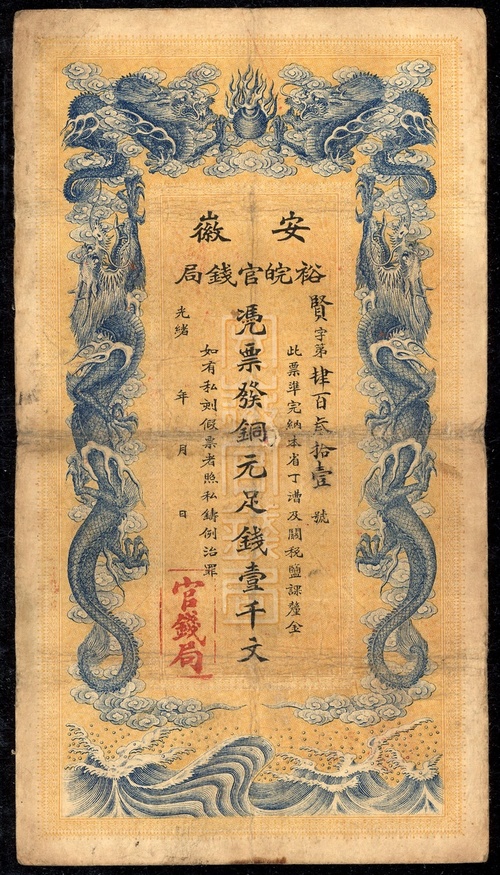 安徽
裕皖官錢局
賢字第肆百貳拾壹號
此票準完納本省丁漕及關稅鹽課釐金
憑票發銅元足錢壹千文
如有私刻假票者照私鑄例治罪
光緒 年 月 日
官錢局